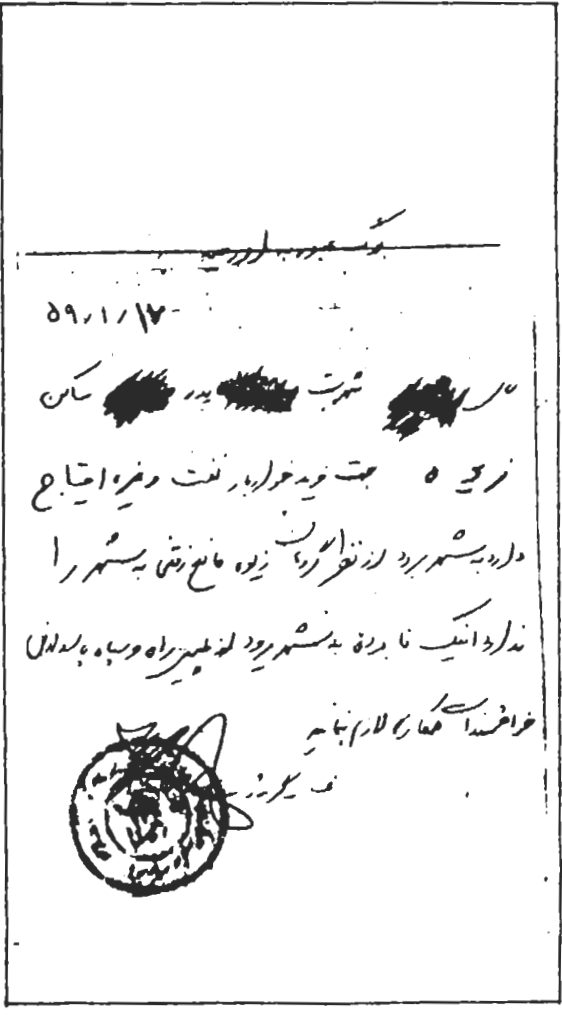 برگ عبور به ارومیه
۵۹/۱/۱۷
شهرت پدر ساکن
جهت خرید خواربار نفت و غیره احتیاج
دارد به شهر برود از نظر گروهان زیوه مانع رفتن به شهر را
ندارد اینک نامبرده به شهر میرود از پلیس راه و سپاه پاسداران
خواهشمند است همکاری لازم بنمایید